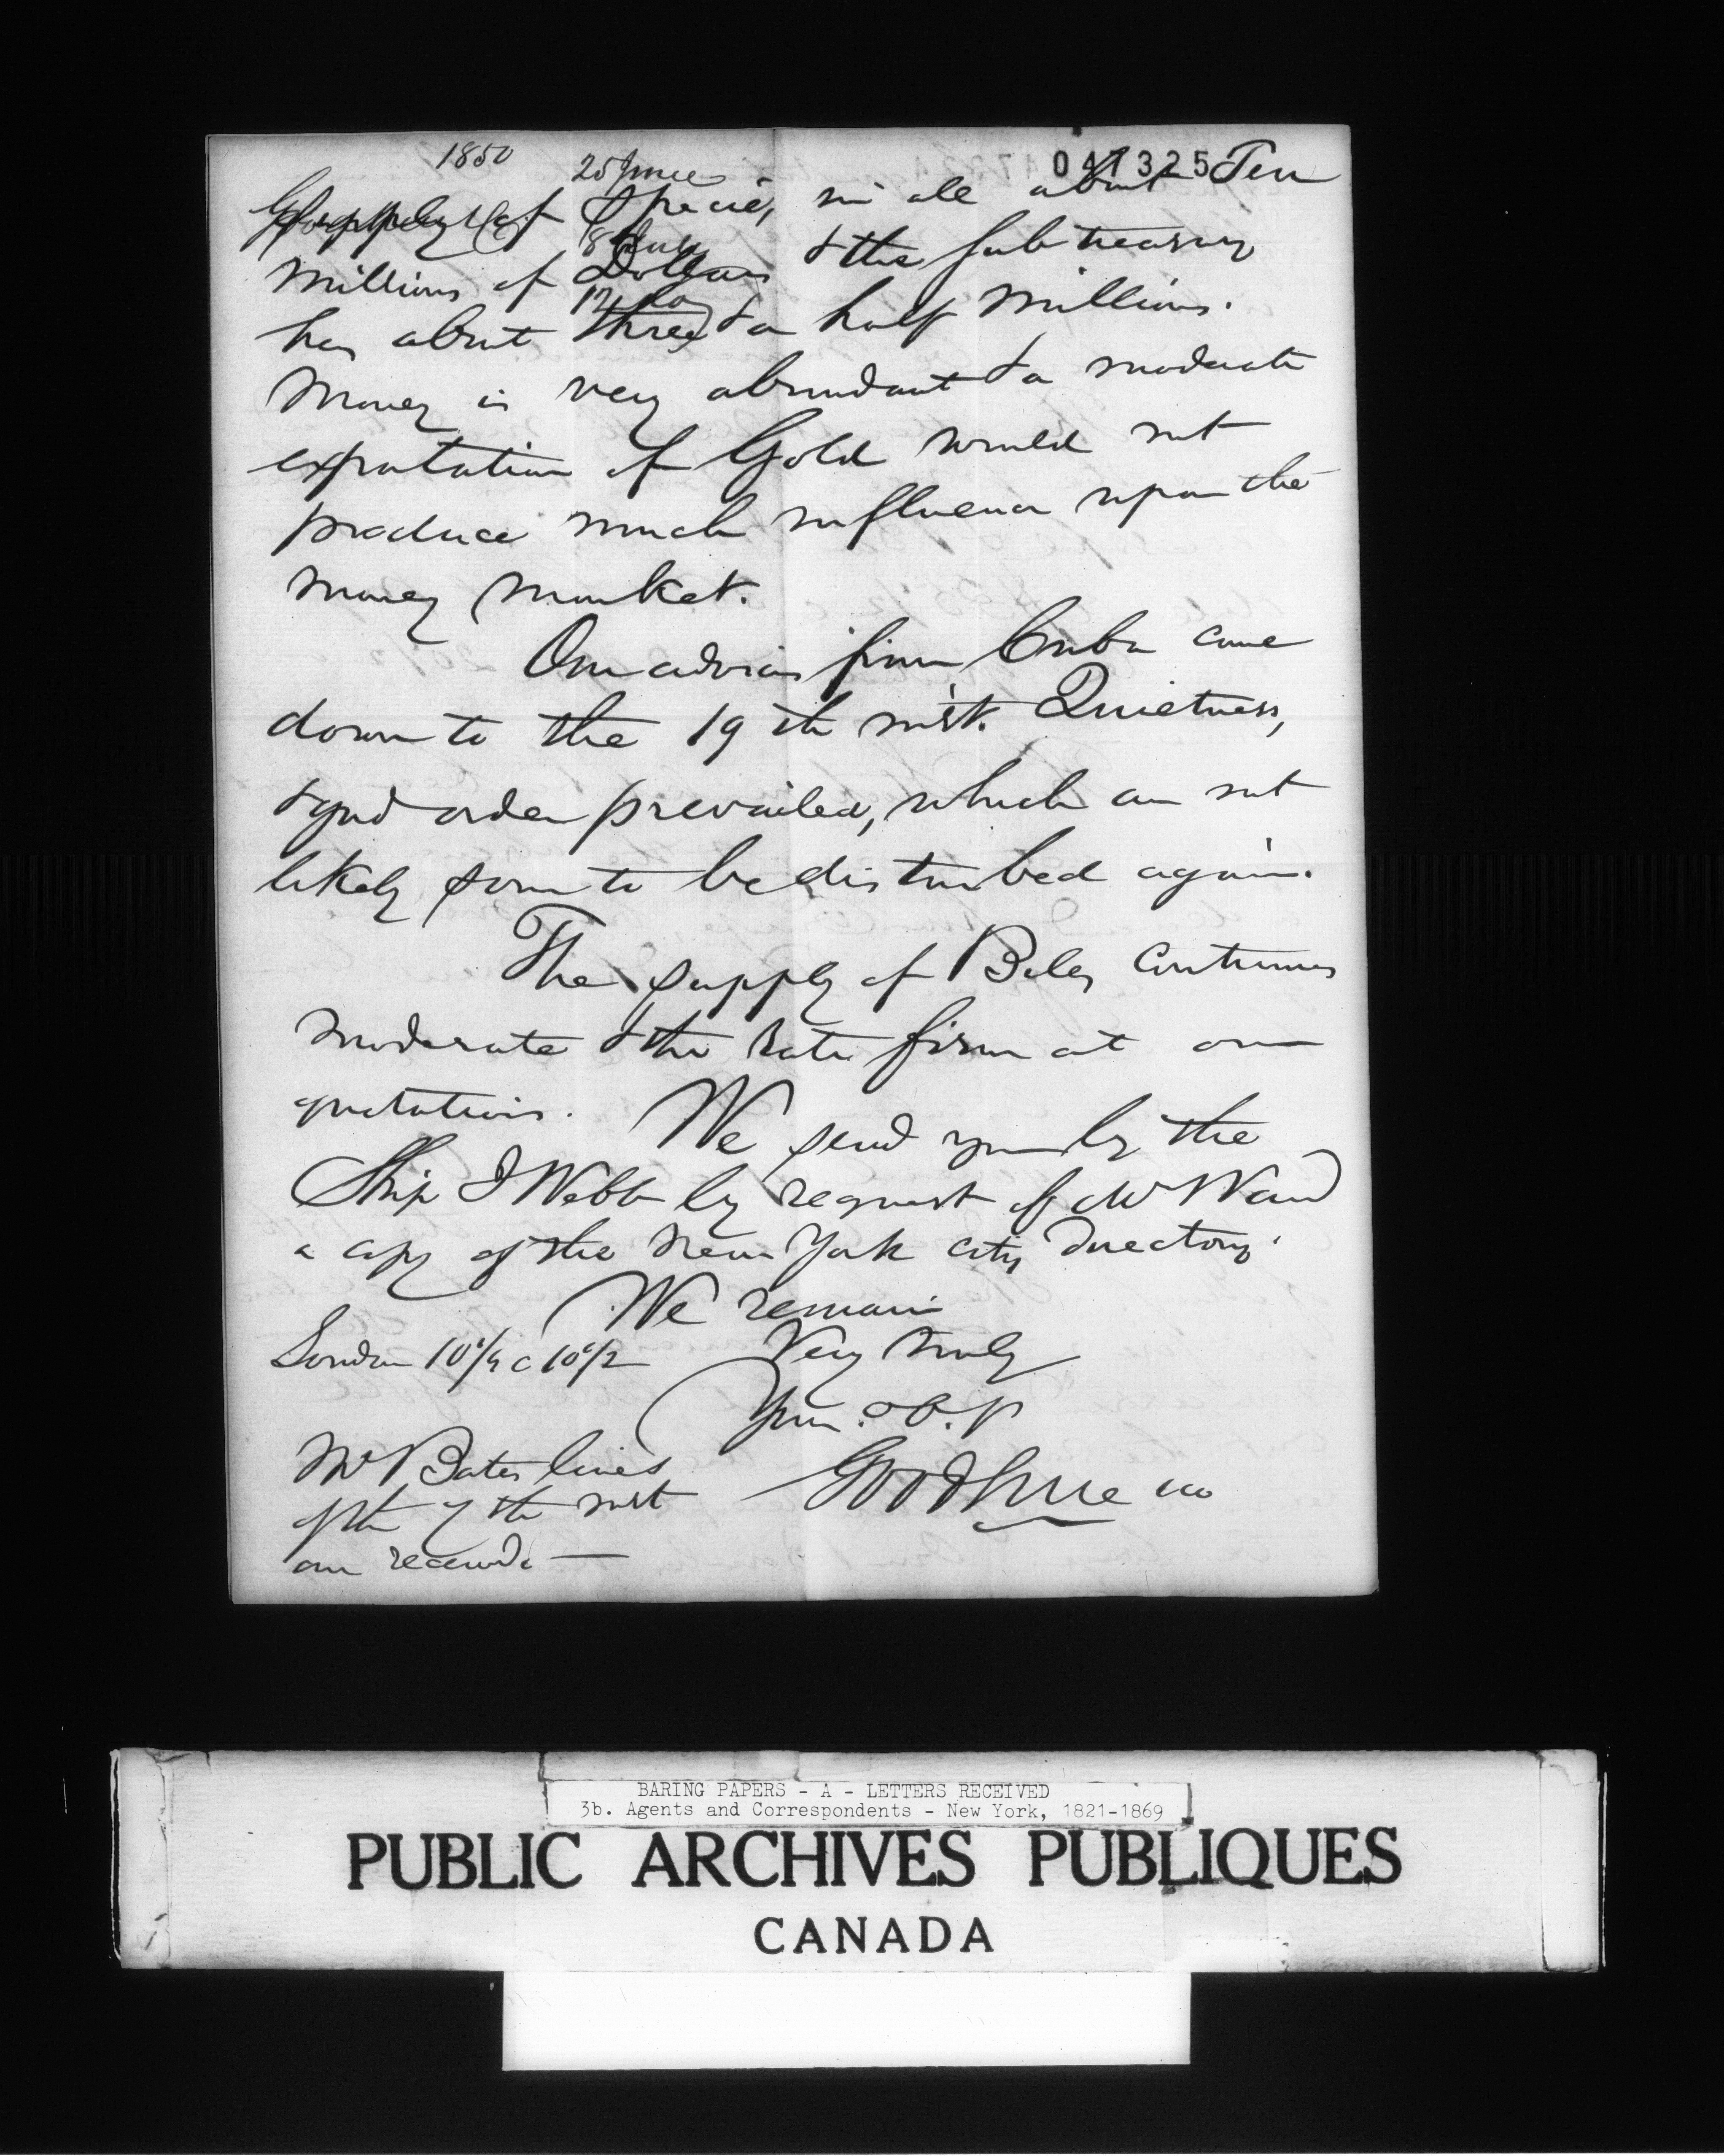 1850
25 June
8 July
17 do
041325
supply of Specie, in all about Ten
Millions of Dollars & the sub treasury
has about three & a half Millions.
Money is very abundant & a moderate
exportation of Gold would not
produce much influence upon the
money market.
Our advices from Cuba come
down to the 19th inst. Quietness,
& good order prevailed, which are not
likely soon to be disturbed again.
The supply of Bills continues
moderate & the rate firm at our
quotations. We send you by the
Ship I Webb by request of Mr Ward
a copy of the New York City Directory.
We remain
London 10 1/4 @ 10 1/2 Very truly
Your. ob. st
Mr Bates lines Goodhue &co
of the 7th inst
are received. —
BARING PAPERS - A - LETTERS RECEIVED
3b. Agents and Correspondents - New York, 1821-1869
PUBLIC ARCHIVES PUBLIQUES
CANADA